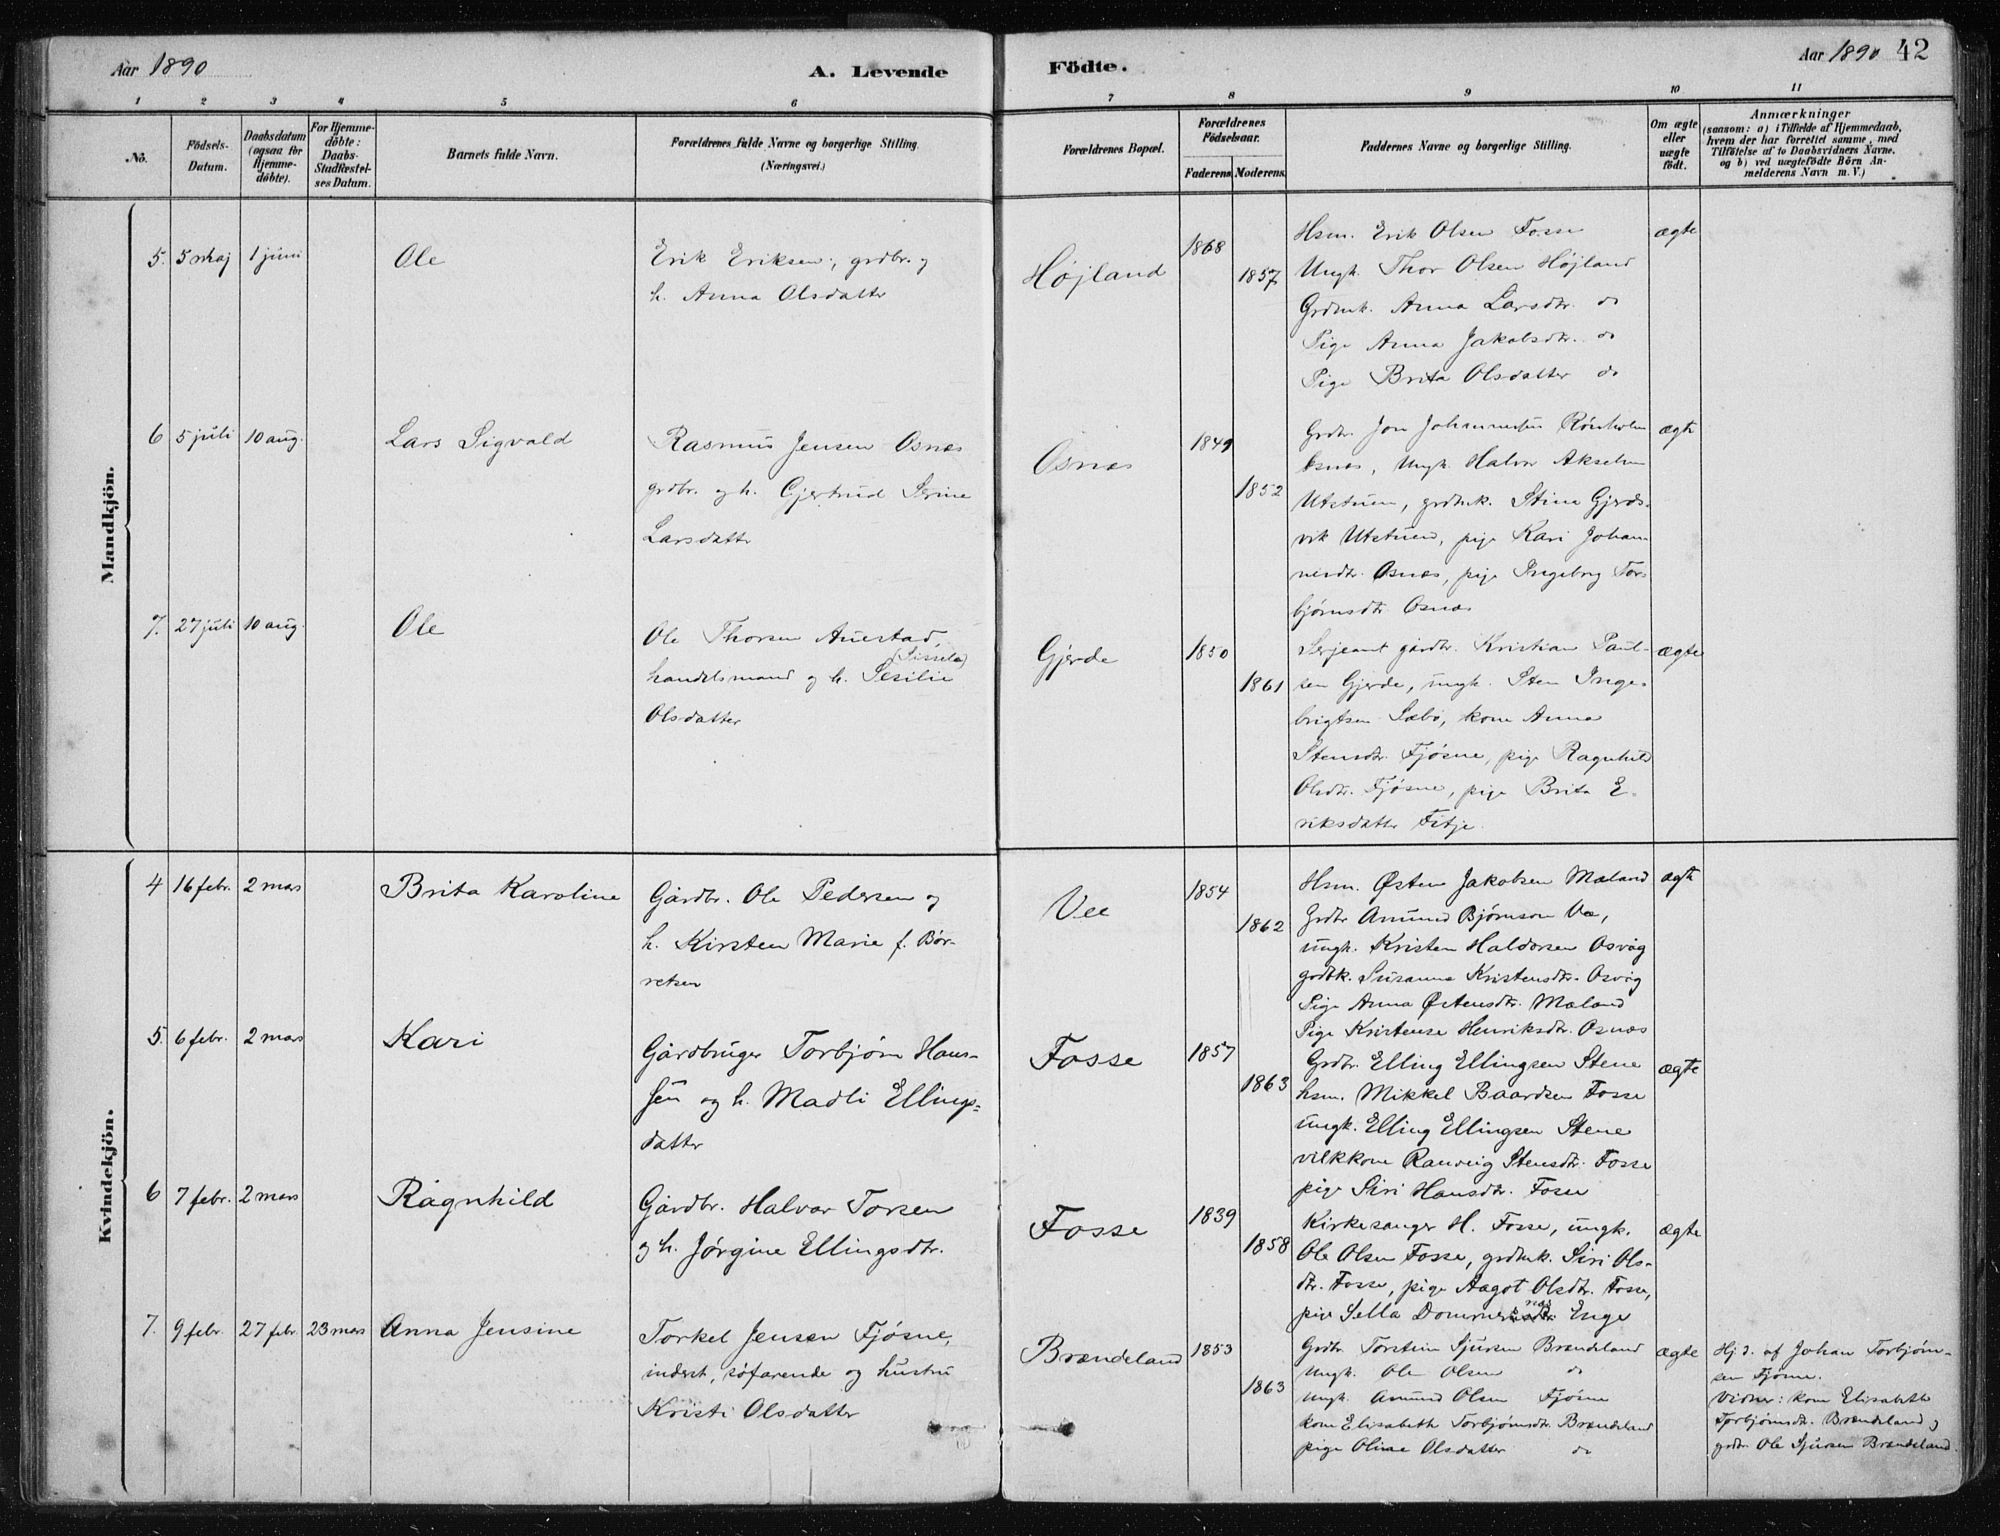 Aar 1890
A. Levende
Födte.
Aar 1890
42
1 2 3 4 5 6 7 8 9 10 11
No.
Födsels-
Datum.
Daabsdatum
(ogsaa for
Hjemme-
döbte).
For Hjemme-
döbte:
Daabs-
Stadfæstel-
ses Datum.
Barnets fulde Navn.
Forældrenes fulde Navne og borgerlige Stilling.
(Næringsvei.)
Forældrenes Bopæl.
Forældrenes
Födselsaar.
Faderens
Moderens
Faddernes Navne og borgerlige Stilling.
Om ægte
eller
uægte
födt.
Anmærkninger
(saasom: a) i Tilfælde af Hjemmedaab,
hvem der har forrettet samme, med
Tilföielse af to Daabsvidners Navne,
og b) ved uægtefödte Börn An-
melderens Navn m. V.)
Mandkjön.
5. 5 maj 1 juni
Ole
Erik Eriksen, grdbr. og
h. Anna Olsdatter
Højland
1868
1857
Hsm. Erik Olsen Fosse
Ungk. Thor Olsen Højland
Grdmk. Anna Larsdtr. do
Pige Anna Jakobsdtr. do
Pige Brita Olsdatter do
ægte
6 5 juli 10 aug.
Lars Sigvald
Rasmus Jensen Osnæs
grdbr. og h. Gjertrud Serine
Larsdatter
Osnæs
1849
1852
Grdbr. Jon Johannesen Rönholm
Osnæs, Ungk. Halvor Akselsen
Utstuen, grdmk. Stina Gjerds-
vik Utstuen, pige Kari Johan-
nesdtr. Osnæs, pige Ingeborg Tor-
bjørnsdtr Osnæs
ægte
7. 27 juli 10 aug.
Ole
Ole Thorsen Auestad,
(Sissela)
handelsmand og h. Sesilie
Olsdatter
Gjerde
1850
1861
Serjeant gårdbr. Kristian Paul-
sen Gjerde, ungk. Sten Inge-
brigtsen Sæbö, kone Anna
Stensdtr. Fjøsne, pige Ragnhild
Olsdtr. Fjøsne, pige Brita E-
riksdatter Fitje.
ægte
Kvindekjön.
4 16 febr. 2 mars
Brita Karoline
Gårdbr. Ole Pedersen og
h. Kirsten Marie f. Bør-
retsen
Vee
1854
1862
Hsm. Østen Jakobsen Mæland
Grdbr Amund Bjørnson Væ,
ungk. Kristen Haldorsen Osvåg
grdbk. Susanna Kristensdtr. Osvåg
Pige Anna Østensdtr. Mæland
Pige Kristense Henriksdtr. Osnæs
ægte
5. 6 febr. 2 mars
Kari
Gårdbruger Torbjørn Hans-
sen og h. Madli Ellings-
datter
Fosse
1857
1863
Grdbr. Elling Ellingsen Stene
hsm. Mikkel Baardsen Fosse
ungk. Elling Ellingsen Stene
vilkkone Ranveig Stensdtr. Fosse
pige Siri Hansdtr. Fosse
ægte
6 7 febr. 2 mars
Ragnhild
Gårdbr. Halvor Torsen
og h. Jørgine Ellingsdtr.
Fosse
1839
1858
Kirkesanger H. Fosse, ungk.
Ole Olsen Fosse, grdmk. Siri Ols-
dtr. Fosse, pige Aagot Olsdtr. Fosse,
pige Sella Enge
ægte
7. 9 febr. 27 febr 23 mars
Anna Jensine
Torkel Jensen Fjøsne,
inderst, søfarende og hustru
Kristi Olsdatter
Brændeland
1853
1863
Grdbr. Torstein Sjursen Brændeland
Ungk. Ole Olsen do
Ungk. Amund Olsen Fjøsne
kone Elisabeth Torbjørnsdtr. Brændeland
pige Oline Olsdatter do
ægte
Hj. d. af Johan Torbjørn-
sen Fjøsne.
Vidner: kone Elisabeth
Torbjørnsdtr. Brændeland og
grdbr. Ole Sjursen Brændeland.